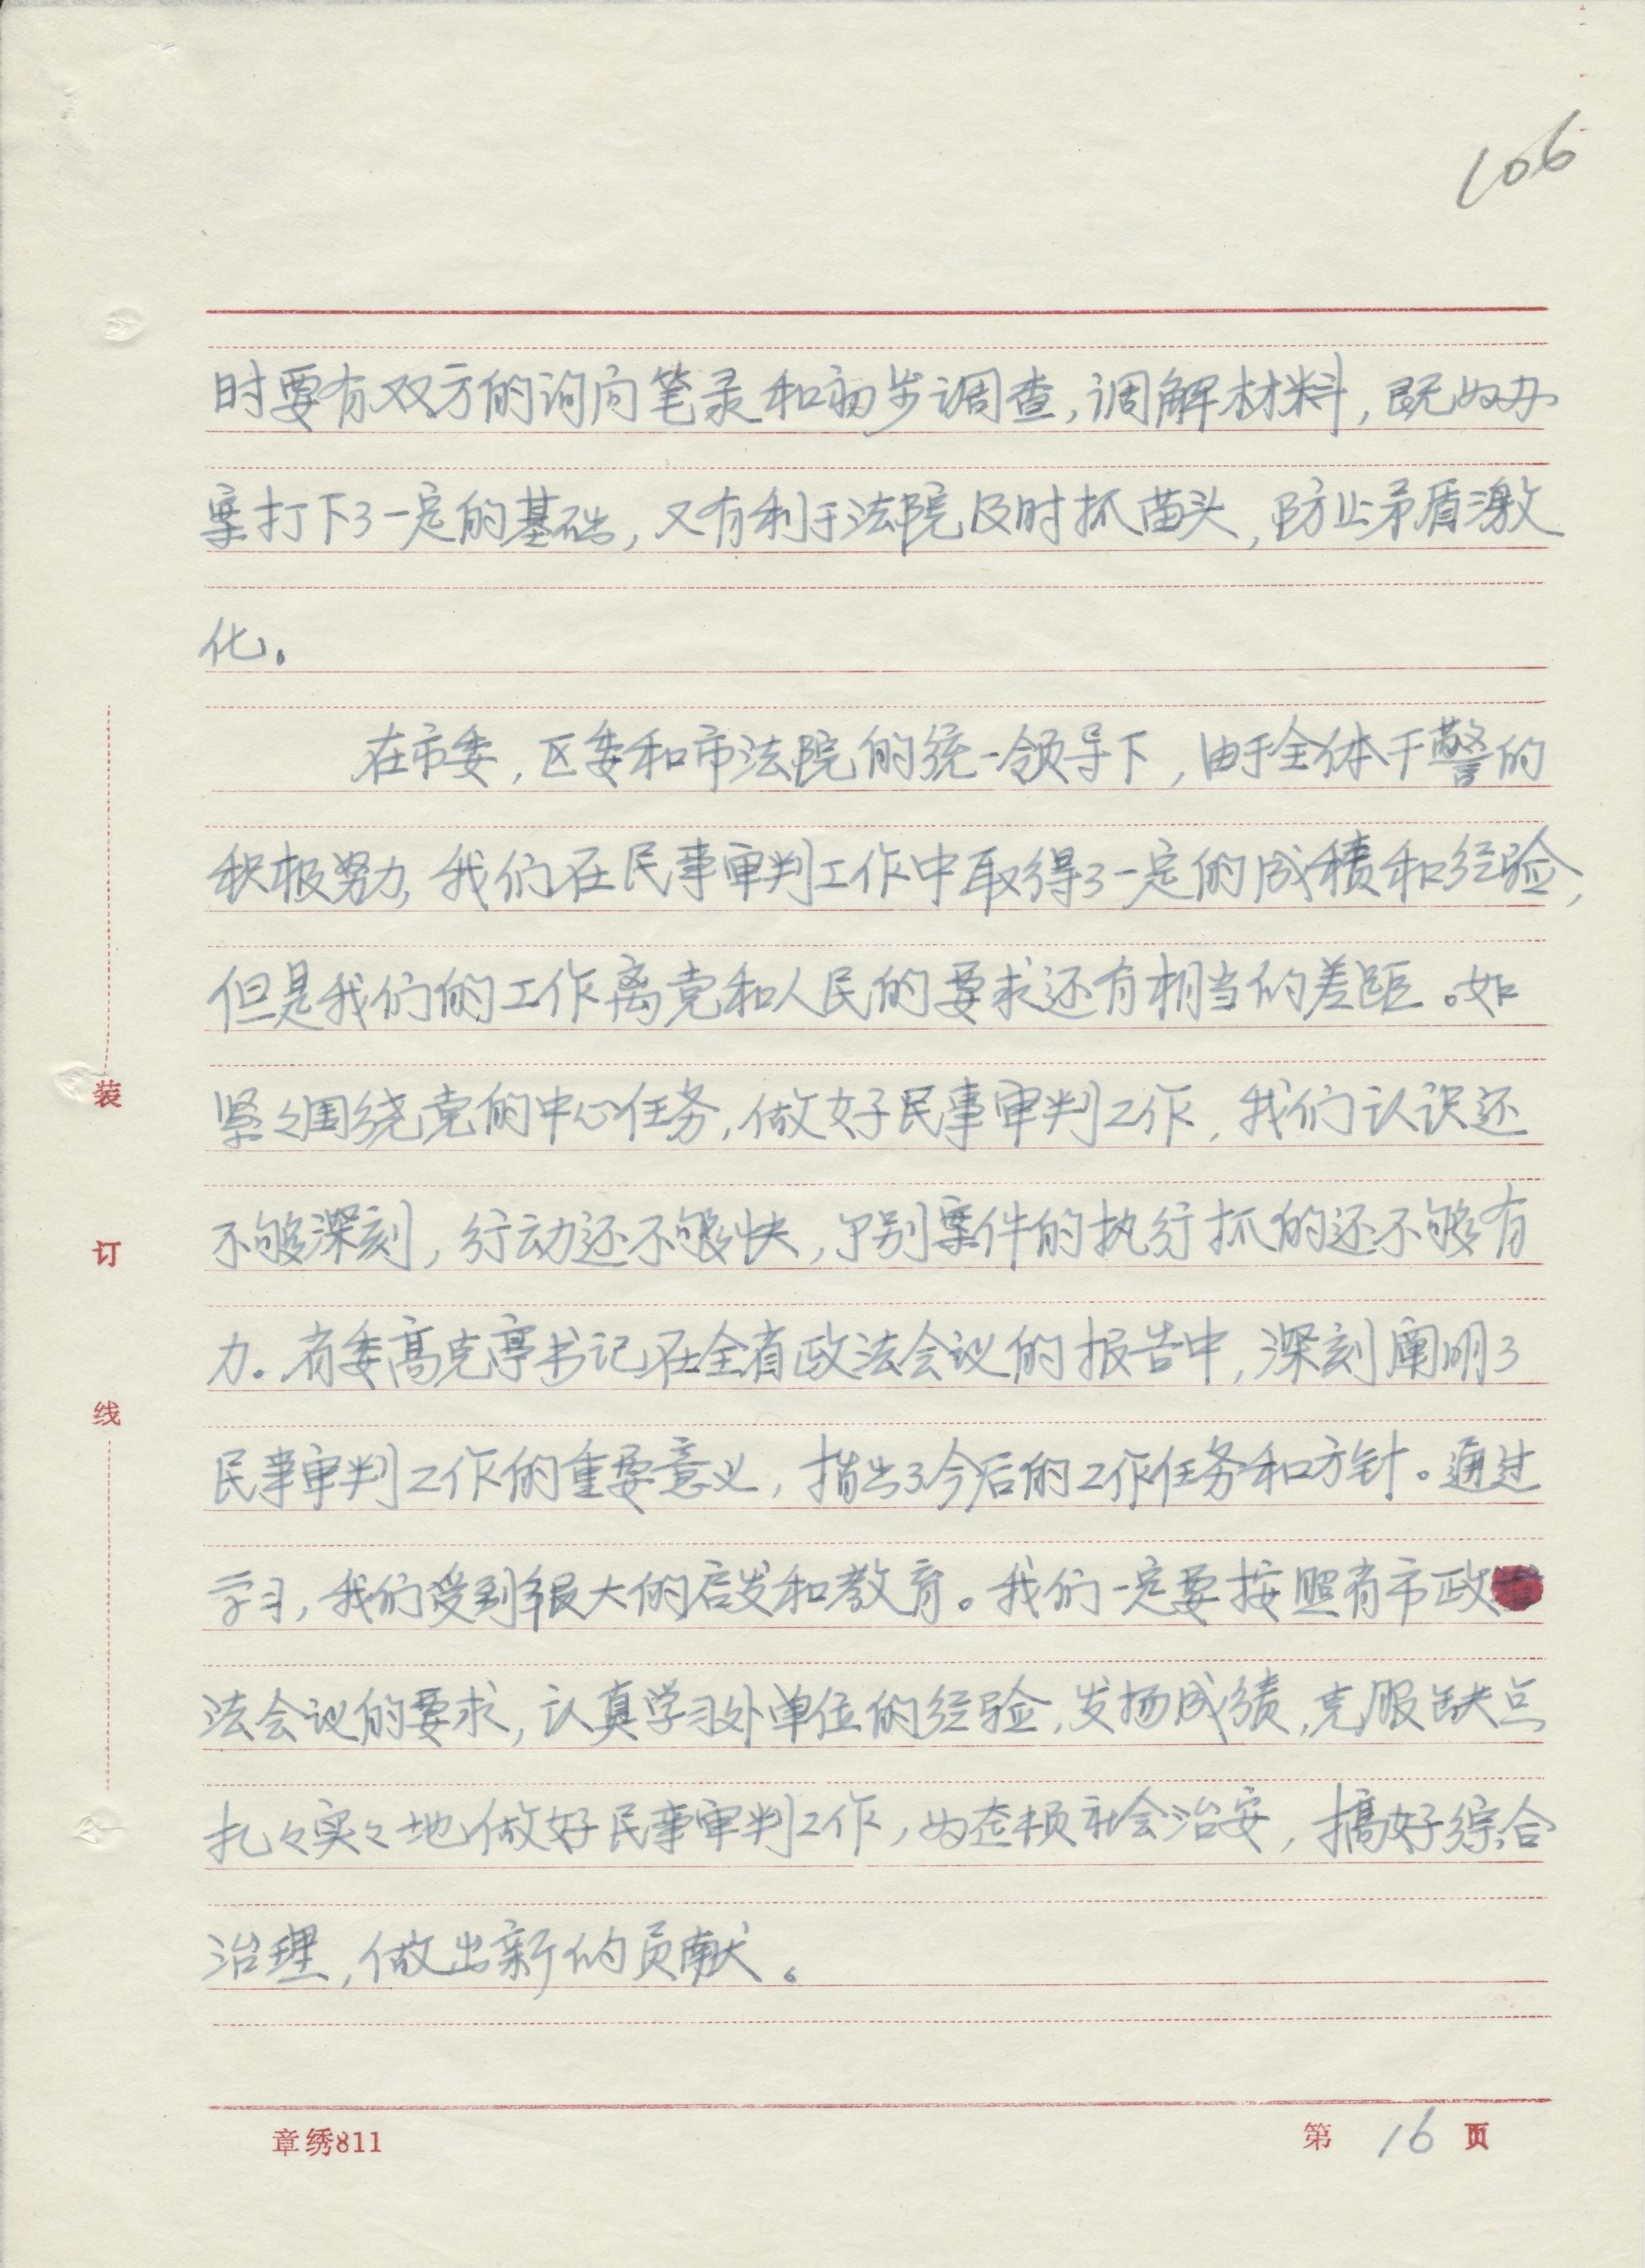 106
时要有双方的询问笔录和初步调查,调解材料,既为办
案打下了一定的基础,又有利于法院及时抓苗头,防止矛盾激
化。
在市委,区委和市法院的统一领导下,由于全体干警的
积极努力,我们在民事审判工作中取得了一定的成绩和经验,
但是我们的工作离党和人民的要求还有相当的差距。如
紧々围绕党的中心任务,做好民事审判工作,我们认识还
不够深刻,行动还不够快,个别案件的执行抓的还不够有
力。省委高克亭书记在全省政法会议的报告中,深刻阐明了
民事审判工作的重要意义,指出了今后的工作任务和方针。通过
学习,我们受到很大的启发和教育。我们一定要按照省市政
法会议的要求,认真学习外单位的经验,发扬成绩,克服缺点
扎々实々地做好民事审判工作,为整顿社会治安,搞好综合
治理,做出新的贡献。
装
订
线
章绣811
第 16 页